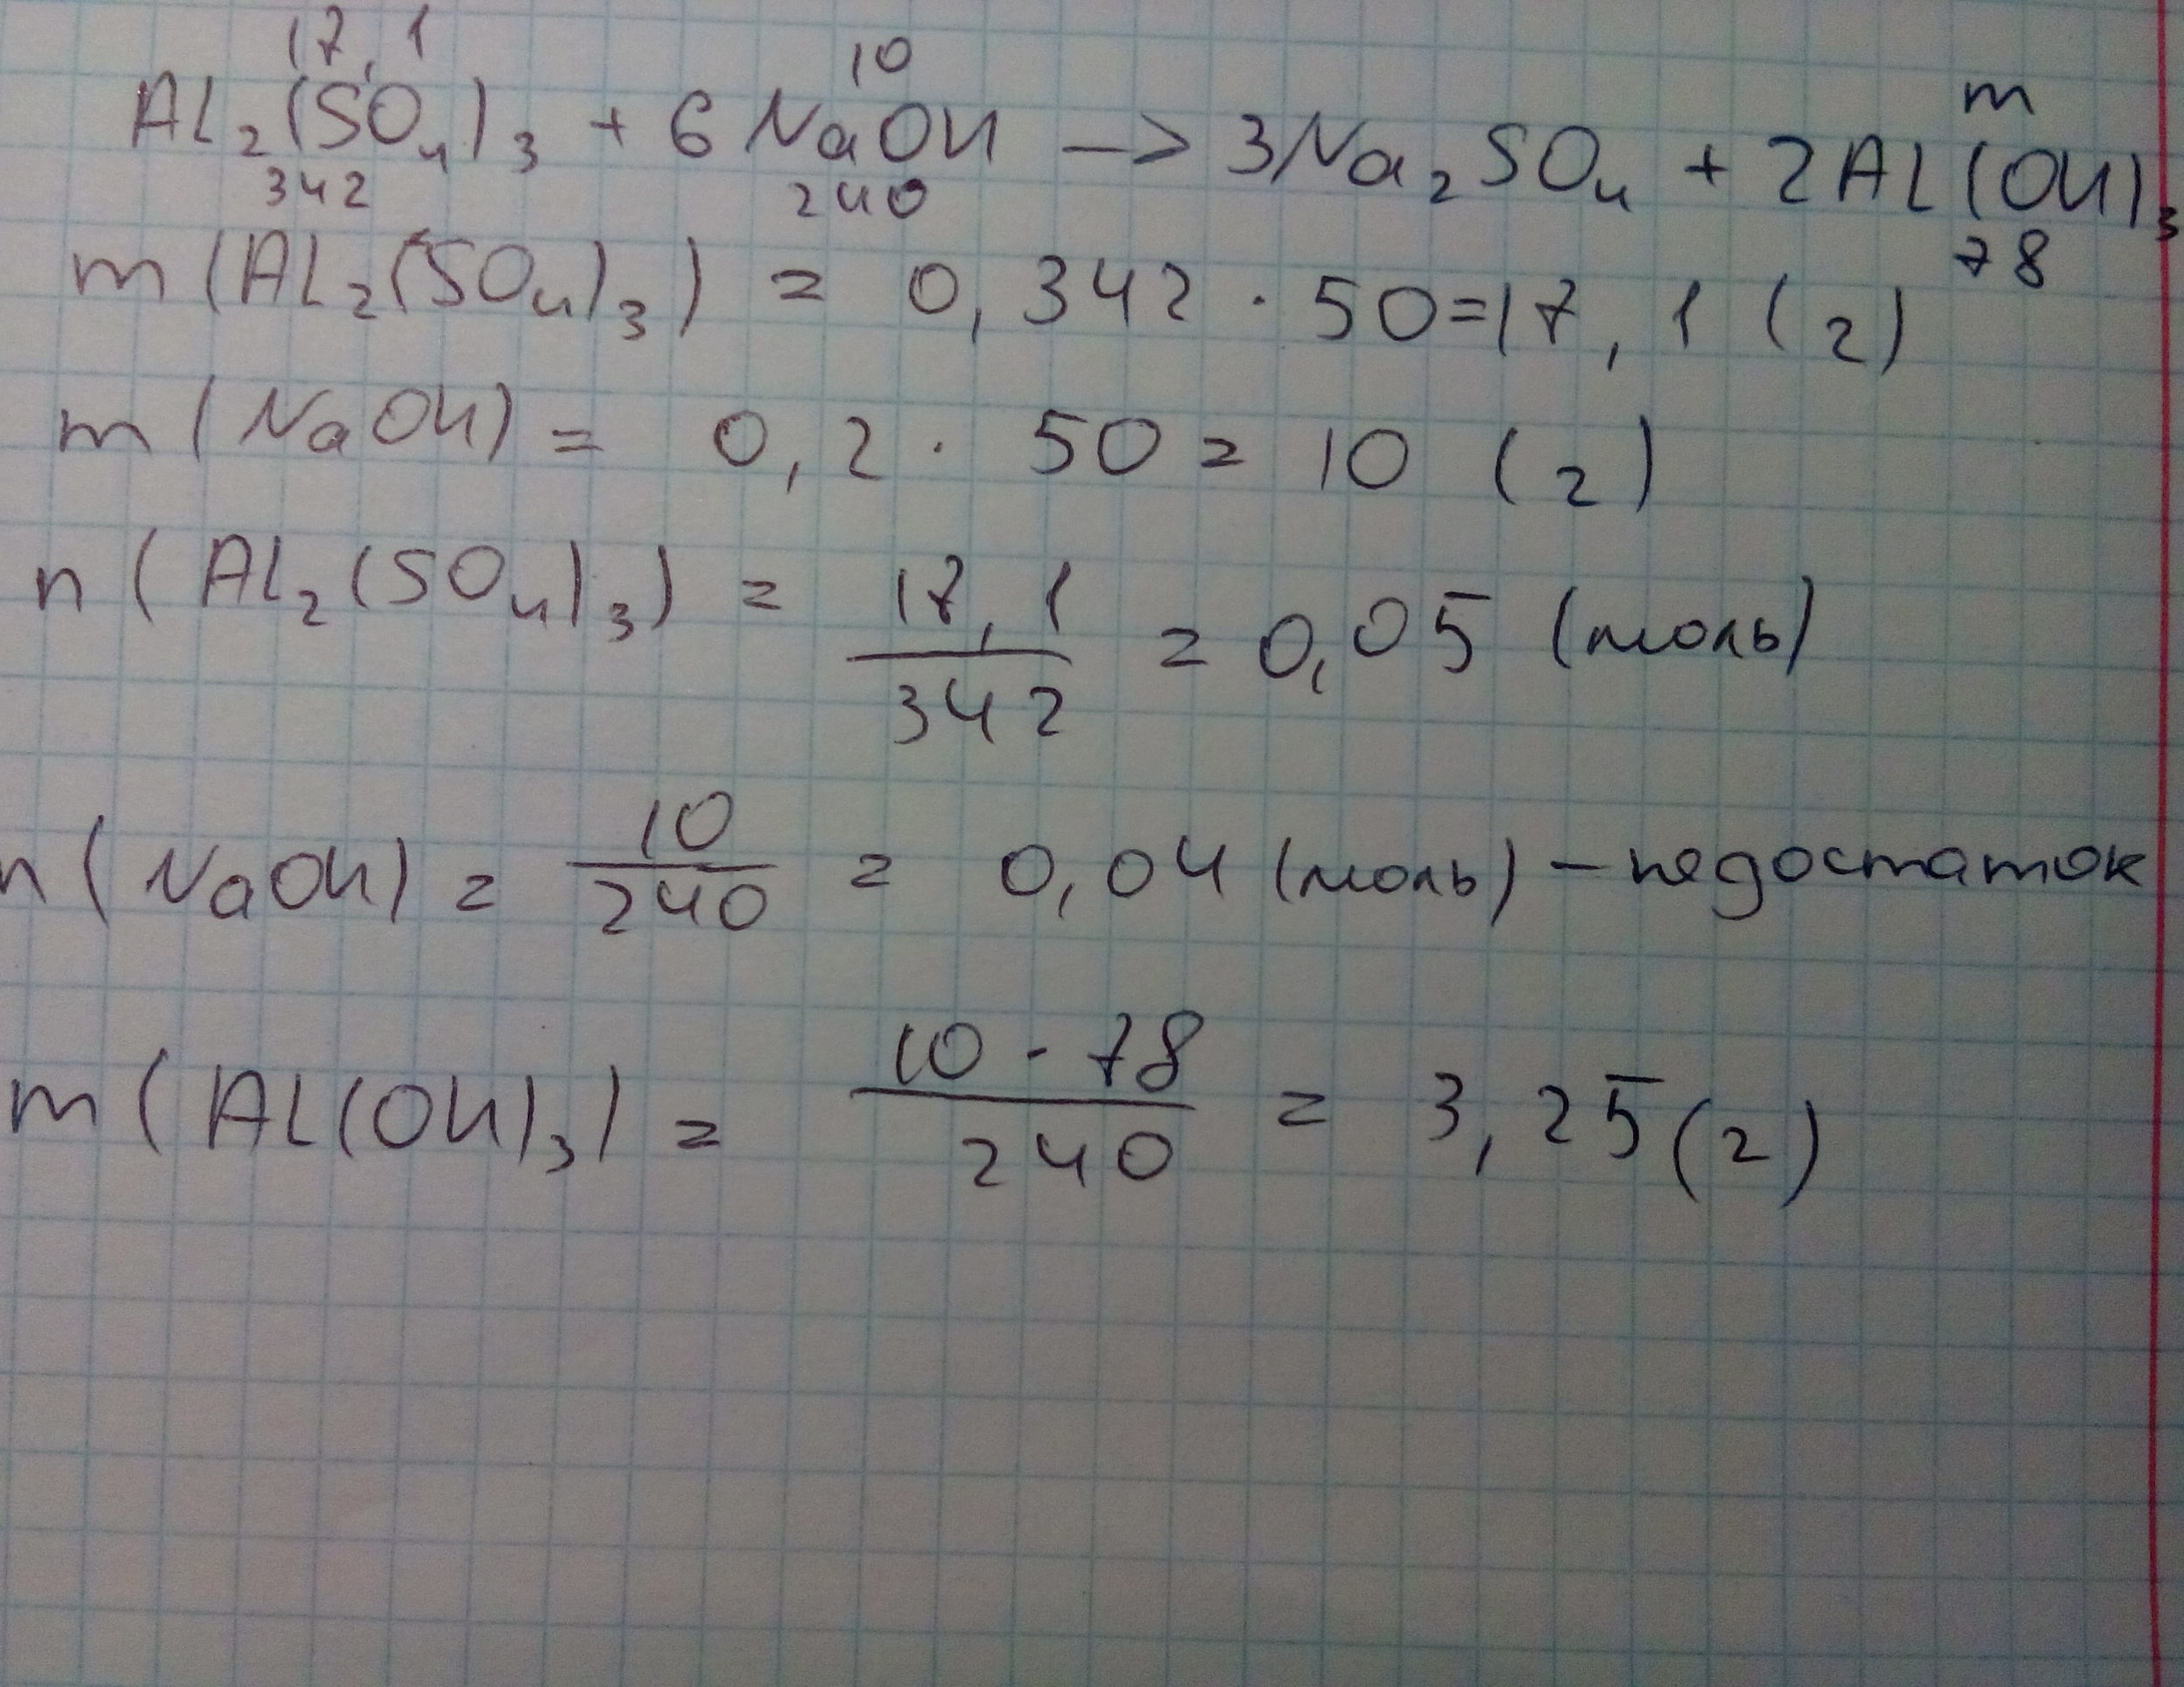 17,1 10 m
AL₂(SO₄)₃ + 6NaOH —> 3Na₂SO₄ + 2AL(OH)₃
342 240 78
m(AL₂(SO₄)₃) = 0,342 · 50 = 17,1 (г)
m(NaOH) = 0,2 · 50 = 10 (г)
n(AL₂(SO₄)₃) = 17,1/342 = 0,05 (моль)
n(NaOH) = 10/240 = 0,04 (моль) – недостаток
m(AL(OH)₃) = 10 · 78/240 = 3,25 (г)